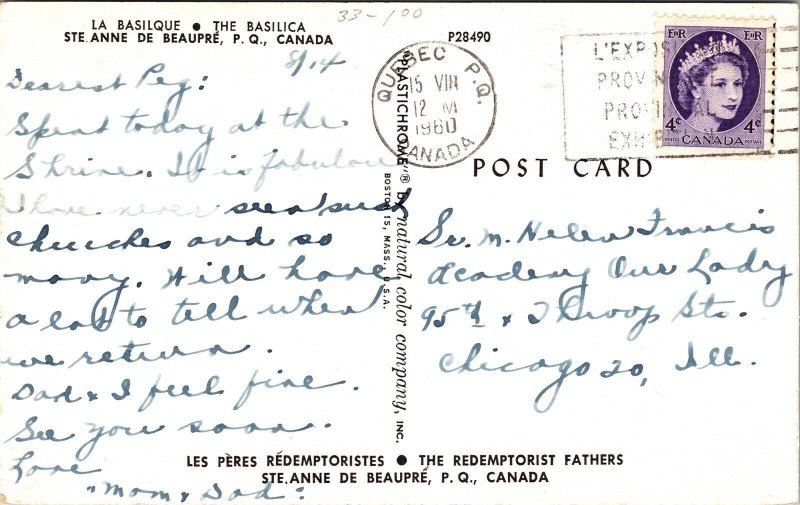 33-100
LA BASILQUE ● THE BASILICA
STE. ANNE DE BEAUPRÉ, P. Q., CANADA
P28490
8/14
Dearest Peg:
Spent today at the
Shrine. It is fabulous
I have never seen such
churches and so
many. Will have
a lot to tell when
we return.
Dad & I feel fine.
See you soon.
Love
"Mom & Dad:
"PLASTICHROME"® by natural color company, INC.
BOSTON 15, MASS., U.S.A.
QUEBEC P.Q.
15 VIII
12 M
1960
CANADA
L'EXPOSI
PROVIN AL
PROVIN AL
EXHIB N
E R E R
4c 4c
POSTES CANADA POSTAGE
POST CARD
Sr. M. Helen Francis
Academy Our Lady
95th & Throop Sts.
Chicago 20, Ill.
LES PÈRES RÉDEMPTORISTES ● THE REDEMPTORIST FATHERS
STE. ANNE DE BEAUPRÉ, P. Q., CANADA